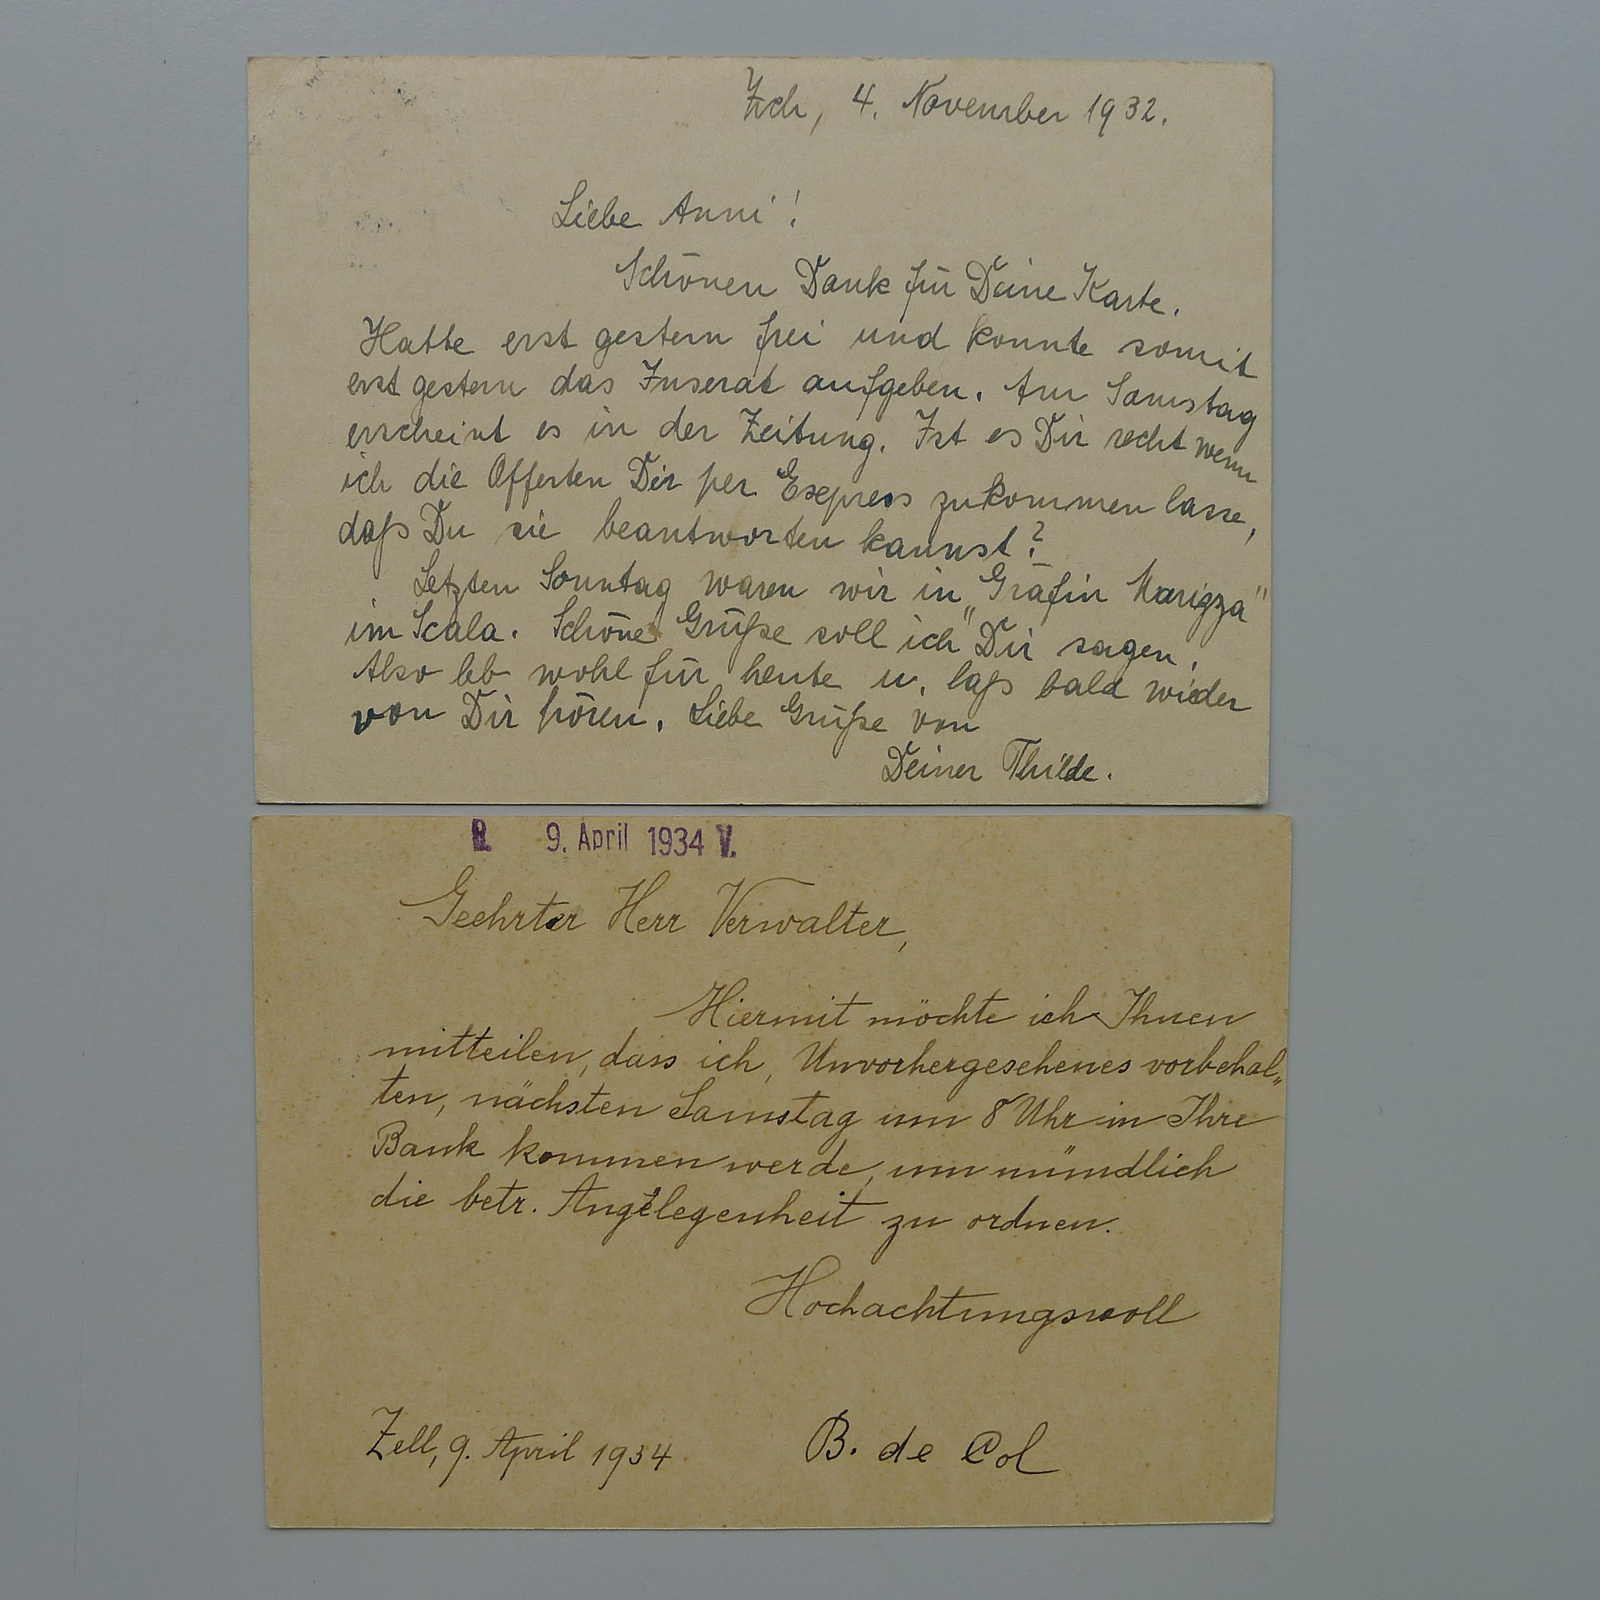 Zch, 4. November 1932.
Liebe Anni!
Schönen Dank für Deine Karte.
Hatte erst gestern frei und konnte somit
erst gestern das Inserat aufgeben. Am Samstag
erscheint es in der Zeitung. Ist es Dir recht wenn
ich die Offerten Dir per Express zukommen lasse,
daß Du sie beantworten kannst?
Letzten Sonntag waren wir in „Gräfin Marizza"
im Scala. Schöne Grüße soll ich Dir sagen.
Also leb wohl für heute u. laß bald wieder
von Dir hören. Liebe Grüße von
Deiner Thilde.
B. 9. April 1934 V.
Geehrter Herr Verwalter,
Hiermit möchte ich Ihnen
mitteilen, dass ich, Unvorhergesehenes vorbehal„
ten, nächsten Samstag um 8 Uhr in Ihre
Bank kommen werde, um mündlich
die betr. Angelegenheit zu ordnen.
Hochachtungsvoll
Zell, 9. April 1934 B. de Col